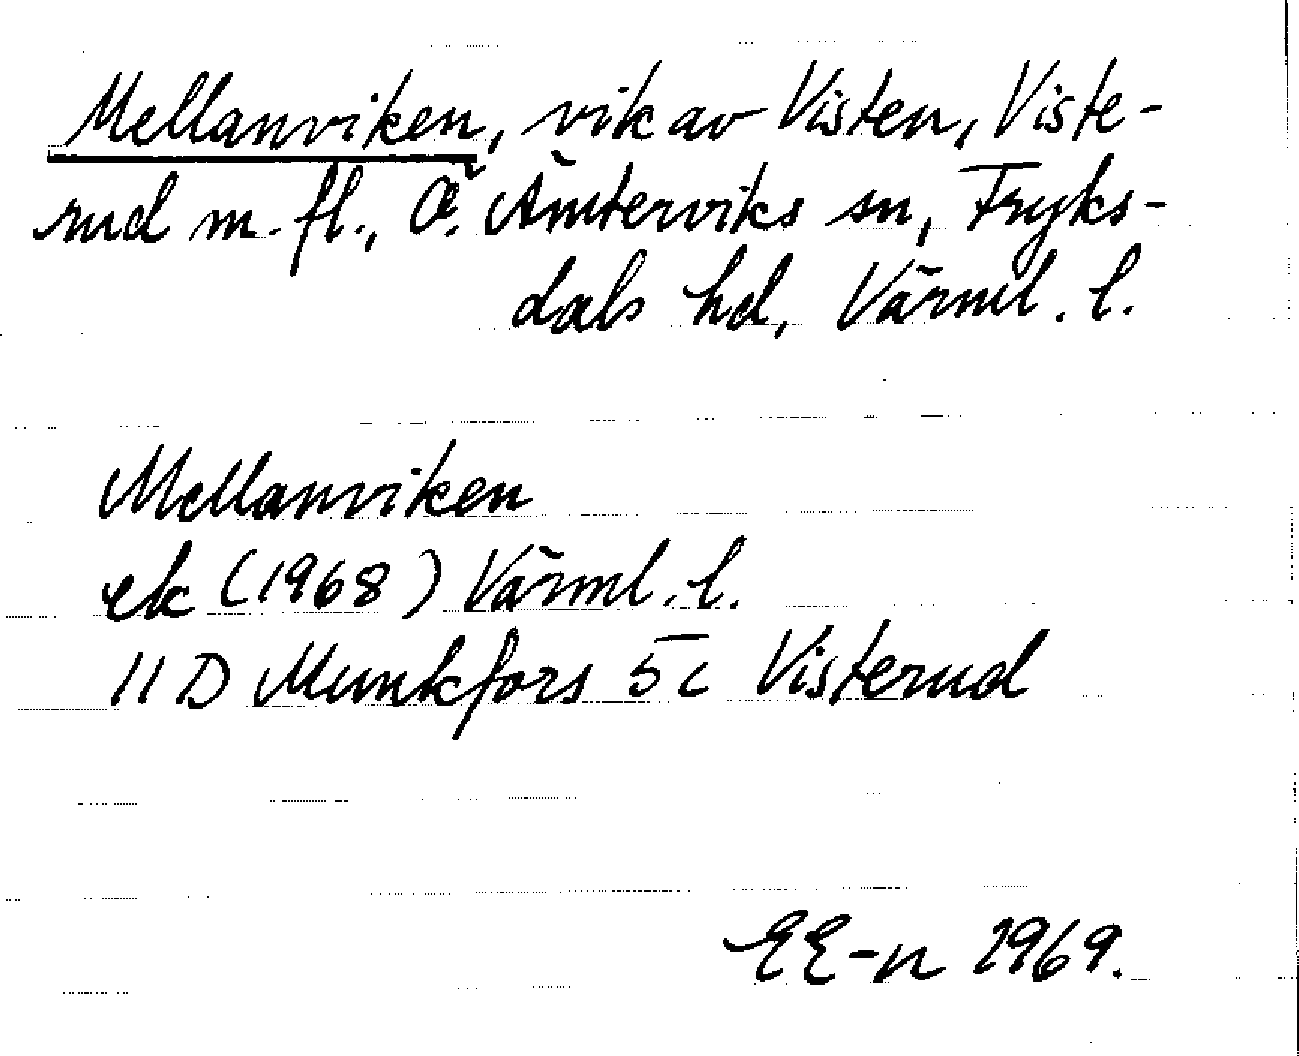 Mellanviken, vik av Visten, Viste-
rud m. fl., Ö. Ämterviks sn, Fryks-
dals hd, Värml. l.
Mellanviken
ek (1968) Värml. l.
11 D Munkfors 5c Visterud
EE-n 1969.